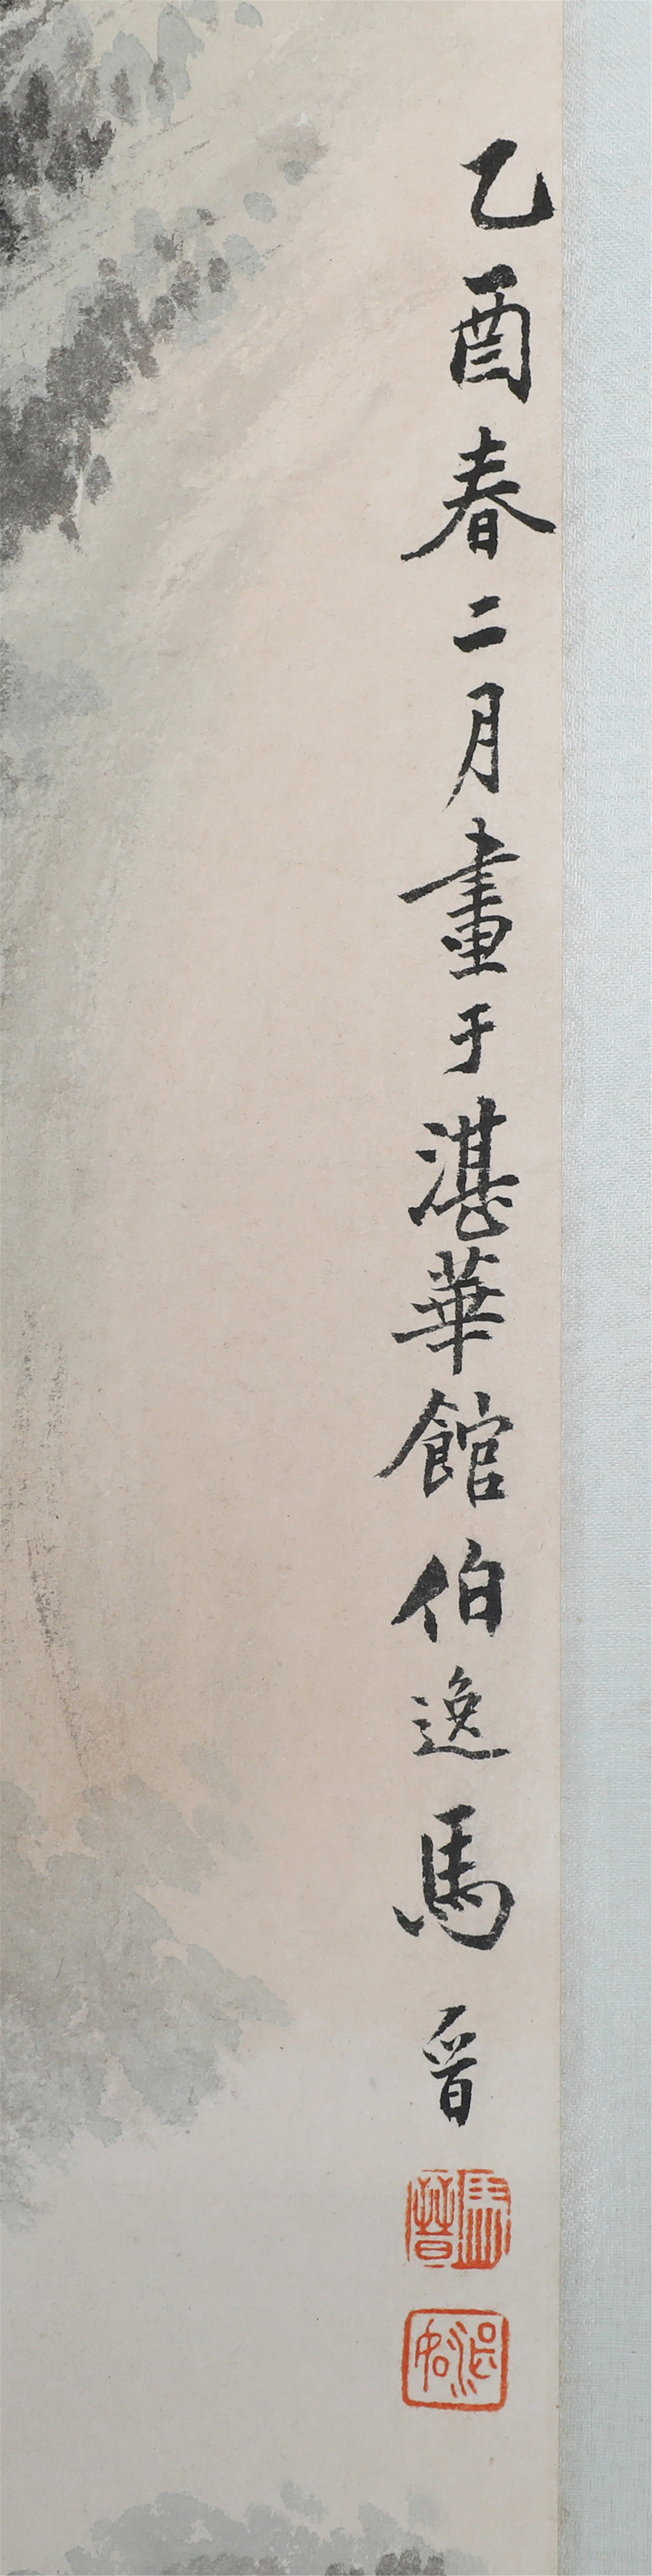 乙酉春二月畫于湛華館伯逸馬晉
馬晉